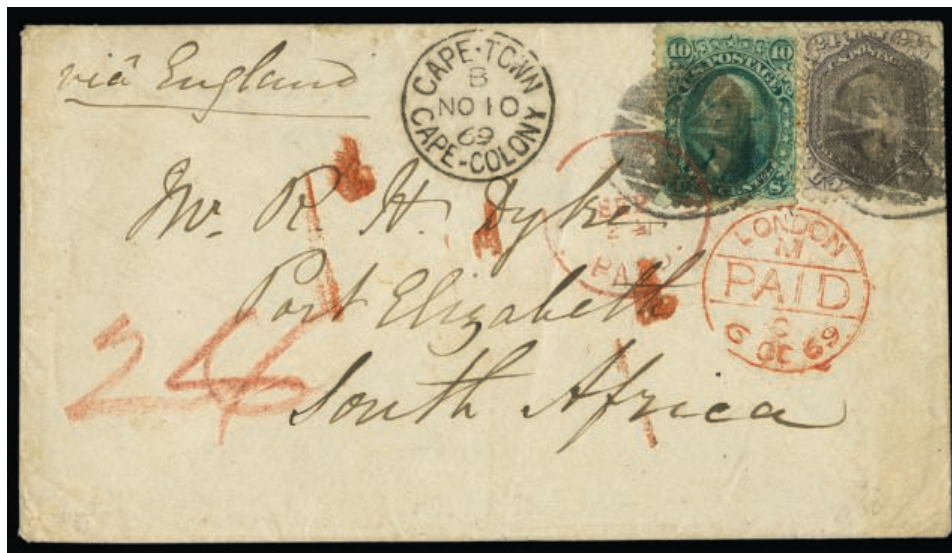 viâ England
CAPE-TOWN
B
NO 10
69
CAPE-COLONY
10 10
U.S. POSTAGE
24 24
U.S. POSTAGE
Mr. R. H. Dyke
Port Elizabeth
South Africa
SEP
PAID
LONDON
M
PAID
6 OC 69
24